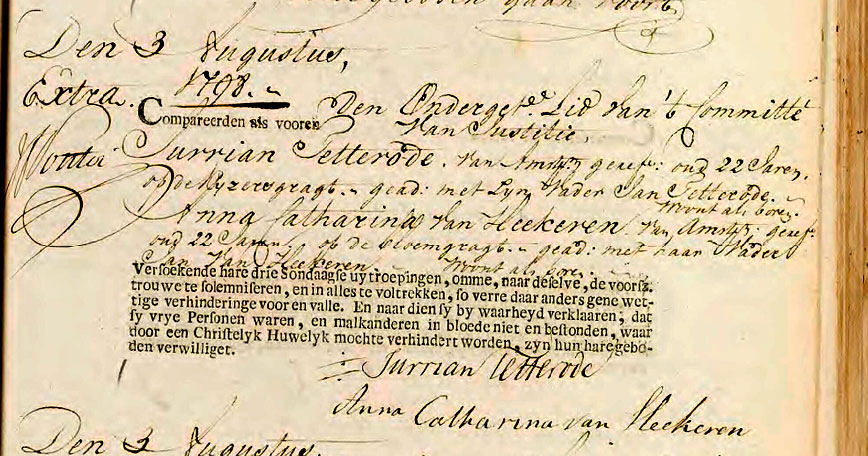 gaan voort
Den 3 Augustus,
1798.
Extra. Den Onderget.de Lid van 't Committé
Compareerden als vooren van Justitie,
Jurrian Tetterode. van Amst:m geref: oud 22 Jaren.
op de Kyzersgragt. gead: met Zyn Vader Jan Tetterode.
Woont als boven.
Anna Catharina van Heekeren van Amst:m geref:
oud 22 Jaren. op de bloemgragt. gead: met haar Vader
Jan van Heekeren. Woont als boven.
Versoekende hare drie Sondaagse uytroepingen, omme, naar deselve, de voorsz.
trouwe te solemniseren, en in alles te voltrekken, so verre daar anders gene wet-
tige verhinderinge voor en valle. En naar dien sy by waarheyd verklaaren; dat
sy vrye Personen waren, en malkanderen in bloede niet en bestonden, waar
door een Christelyk Huwelyk mochte verhindert worden, zyn hun hare gebo-
den verwilliget.
Jurrian Tetterode
Anna Catharina van Heekeren
Den 3 Augustus.